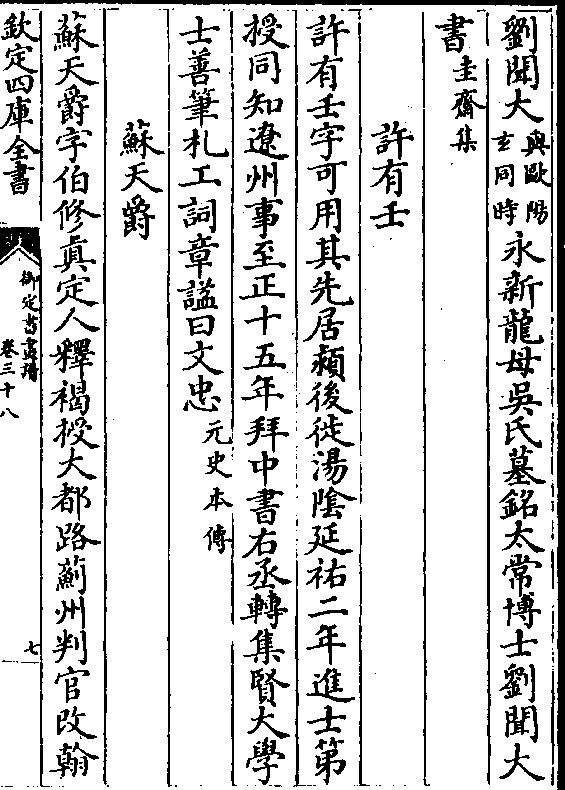 劉聞大與歐陽玄同時永新龍母吳氏墓銘太常博士劉聞大
書圭齋集
許有壬
許有壬字可用其先居潁後徙湯隂延祐二年進士第
授同知遼州事至正十五年拜中書右丞轉集賢大學
士善筆札工詞章諡曰文忠元史本傳
蘇天爵
蘇天爵字伯修真定人釋褐授大都路薊州判官改翰
欽定四庫全書
御定書畫譜
卷三十八
七